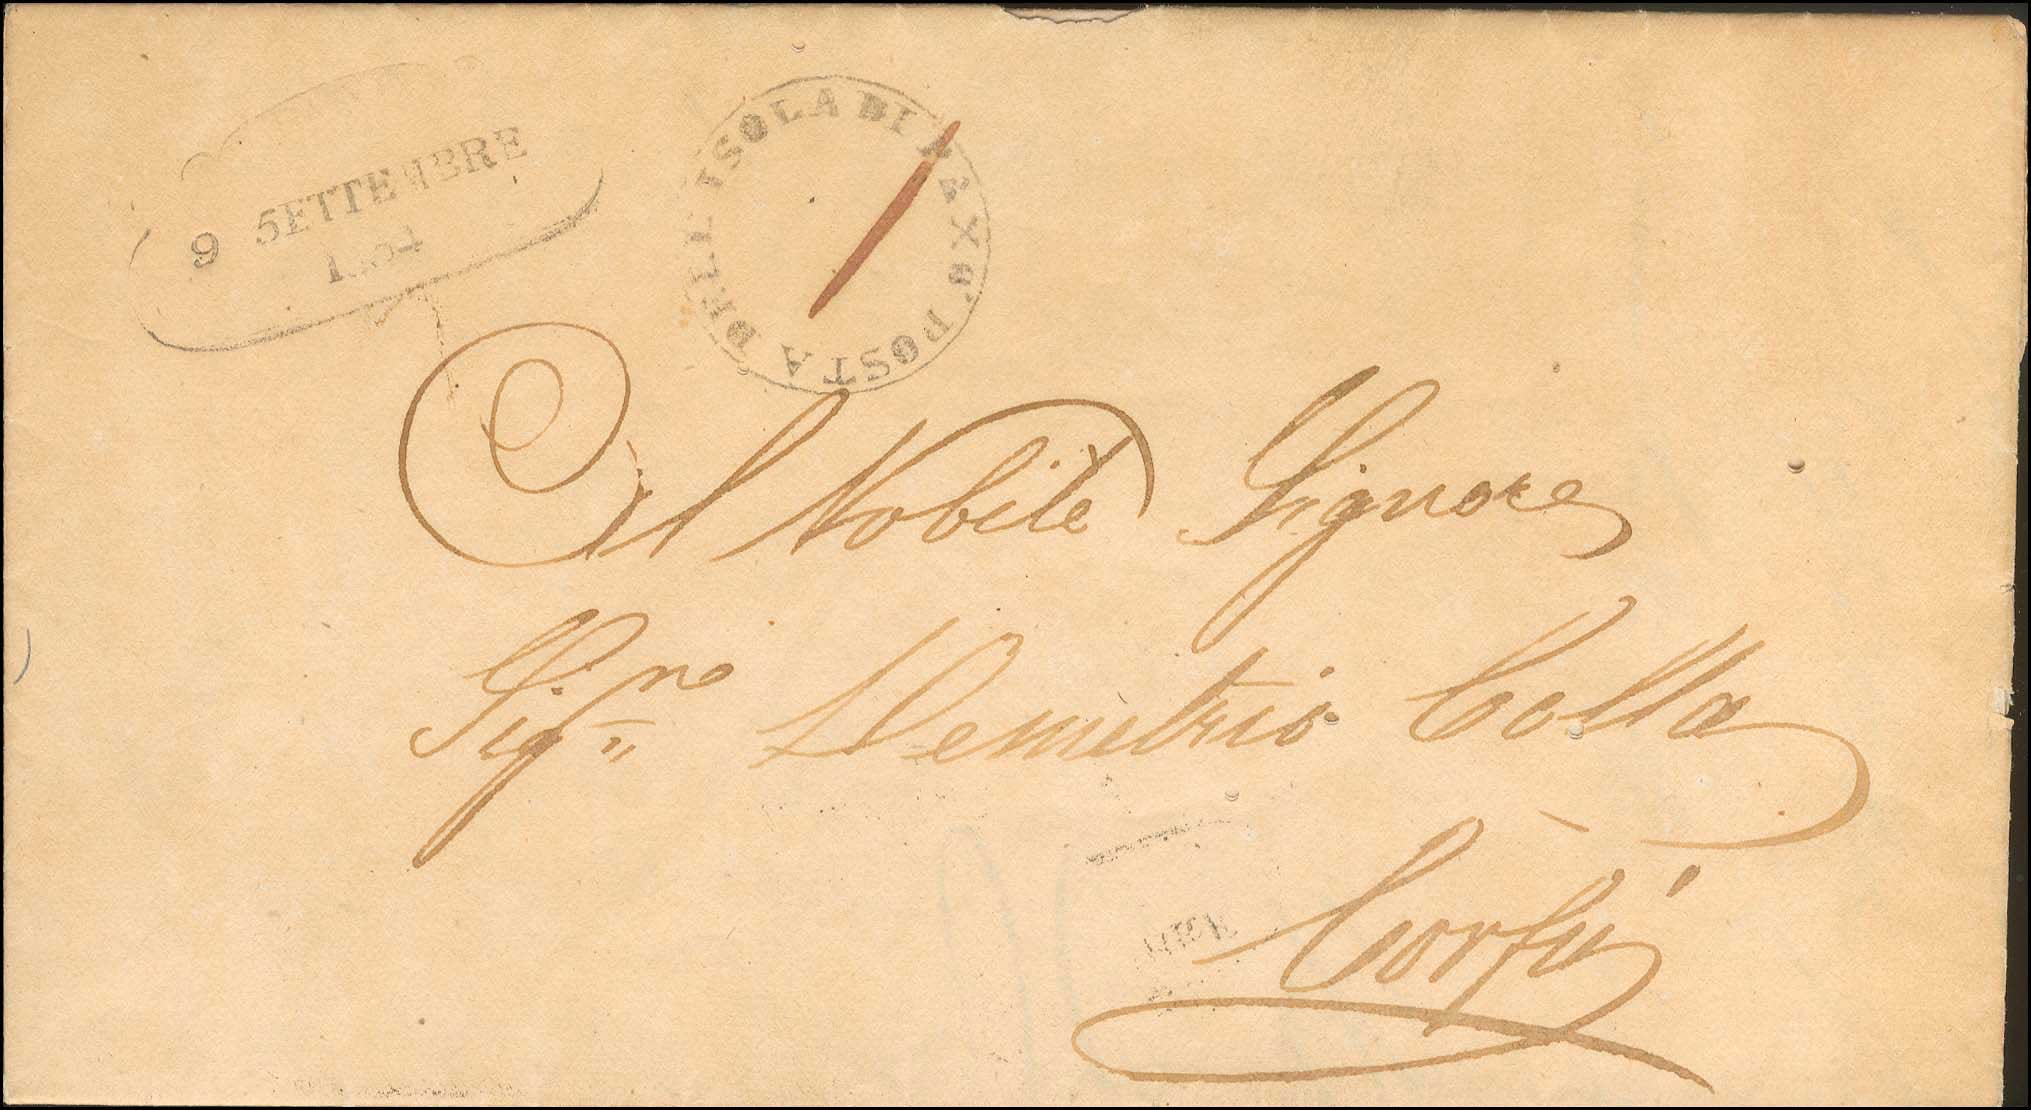 9 SETTEMBRE
POSTA DELL ISOLA DI PAXO
Al Nobile Signore
Sig.re Demetrio Colla
Corfu